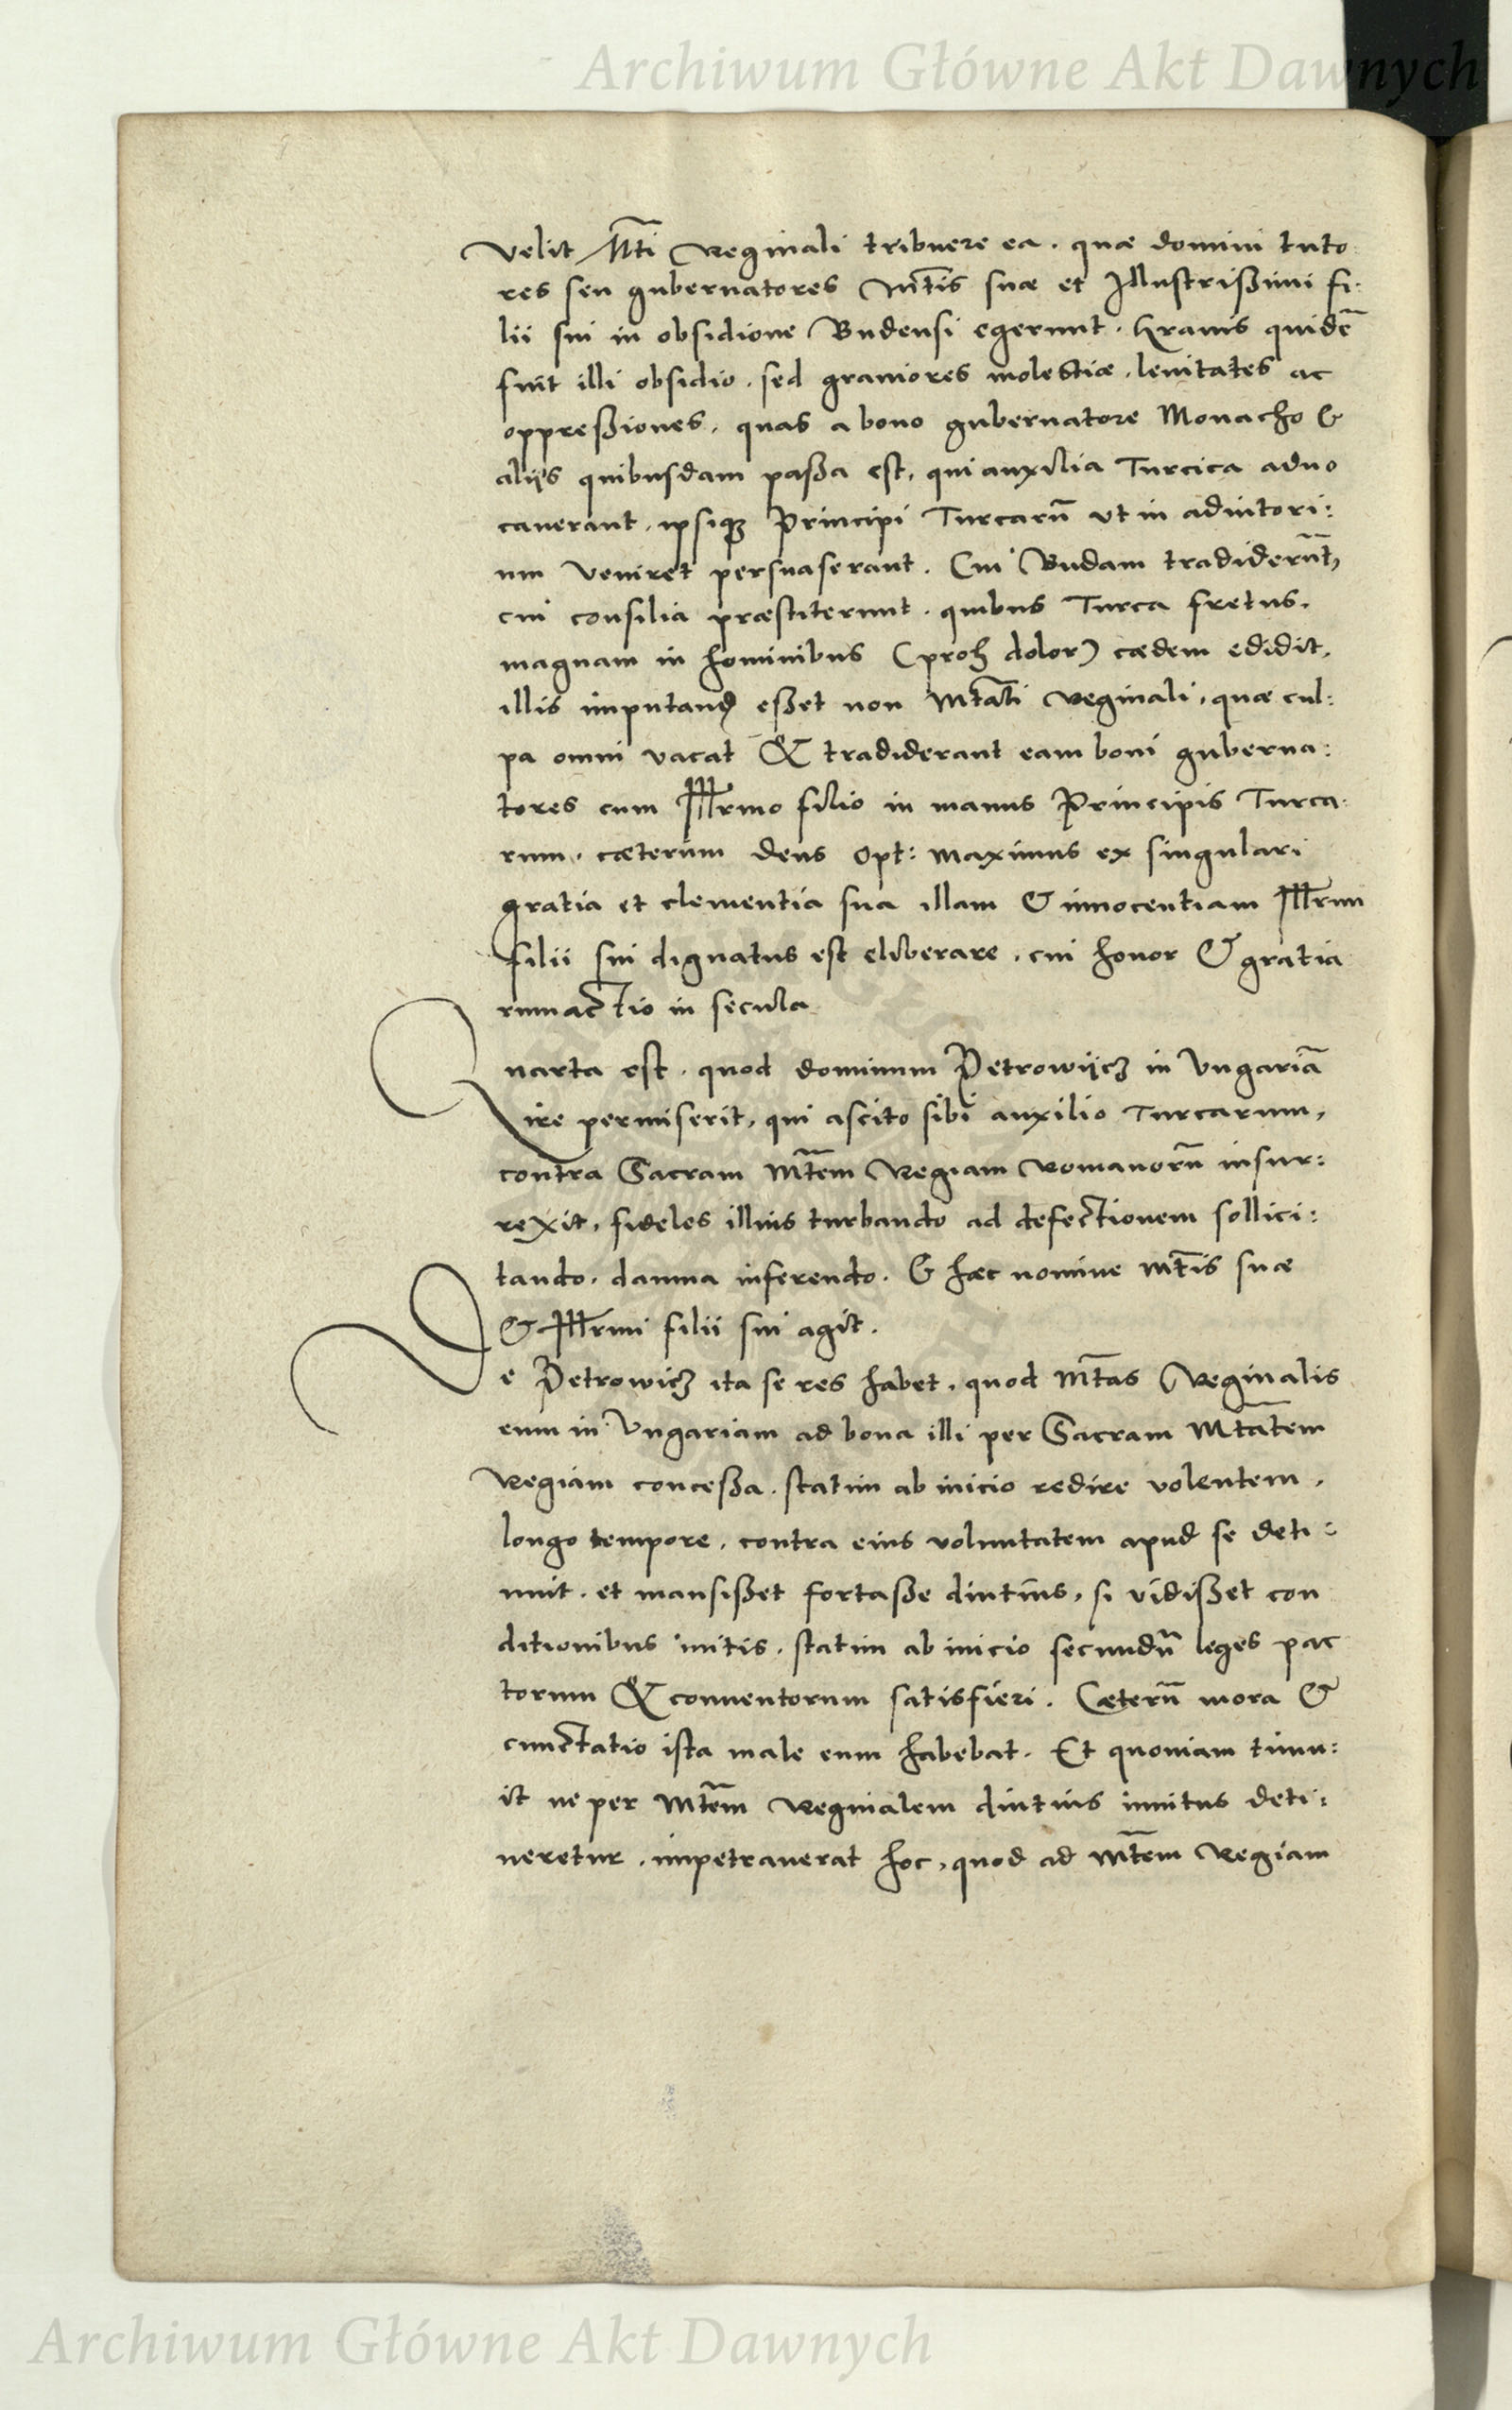 Archiwum Główne Akt Dawnych
velit Mti Reginali tribuere ea. quæ domini tuto
res seu gubernatores Mtis suæ et Illustrißimi fi:
lii sui in obsidione Budensi egerunt. Grauis quidē
fuit illi obsidio. sed grauiores molestiæ. leuitates ac
oppreßiones. quas a bono gubernatore Monacho &
aliis quibusdam paßa est, qui auxilia Turcica aduo
cauerant. ipsiq꜄ Principi Turcarū ut in adiutori:
um veniret persuaserant. Cui Budam tradiderūt,
cui consilia præstiterunt. quibus Turca fretus.
magnam in hominibus (proh dolor) cædem edidit.
illis imputand eßet non Mtati Reginali, quæ cul:
pa omni vacat & tradiderant eam boni guberna:
tores cum Illrmo filio in manus Principis Turca:
rum. cæterum deus opt: maximus ex singulari
gratia et clementia sua illam & innocentiam Illrmi
filii sui dignatus est eliberare. cui honor & gratia
rumactio in secula
Quarta est. quod dominum Petrowijcz in Vngariā
ire permiserit, qui ascito sibi auxilio Turcarum,
contra Sacram Mtem Regiam Romanorū insur:
rexit, fideles illius turbando ad defectionem sollici:
tando. damna inferendo. & hæc nomine Mtis suæ
& Illrmi filii sui agit.
De Petrowicz ita se res habet, quod Mtas Reginalis
eum in Vngariam ad bona illi per Sacram Mtatem
Regiam conceßa. statim ab inicio redire volentem.
longo tempore. contra eius voluntatem apud se deti:
nuit. et mansißet fortaße diutius, si vidißet con
ditionibus initis. statim ab inicio secundū leges pac
torum & conuentorum satisfieri. Cæterū mora &
cunctatio ista male eum habebat. Et quoniam timu:
it ne per Mtem Reginalem diutius inuitus deti:
neretur. impetrauerat hoc, quod ad Mtem Regiam
Archiwum Główne Akt Dawnych